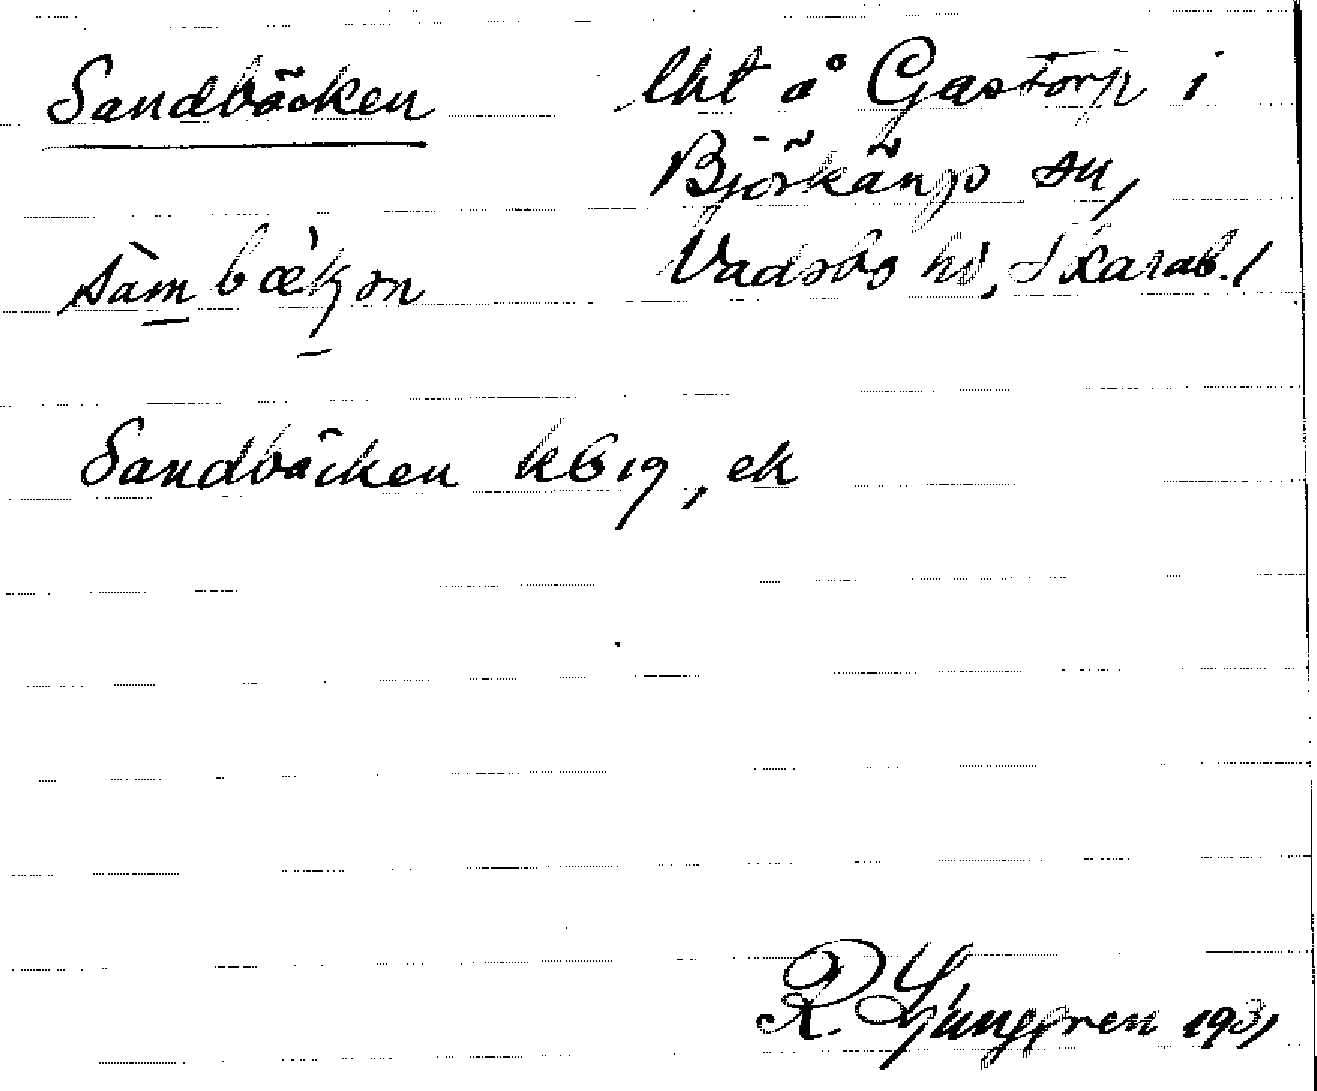 Sandbäcken
lht å Gastorp i
Björkängs sn,
Vadsbo hd, Skarab. l
sàmbæ̀kən
Sandbäcken kb 19, ek
R. Ljunggren 1931